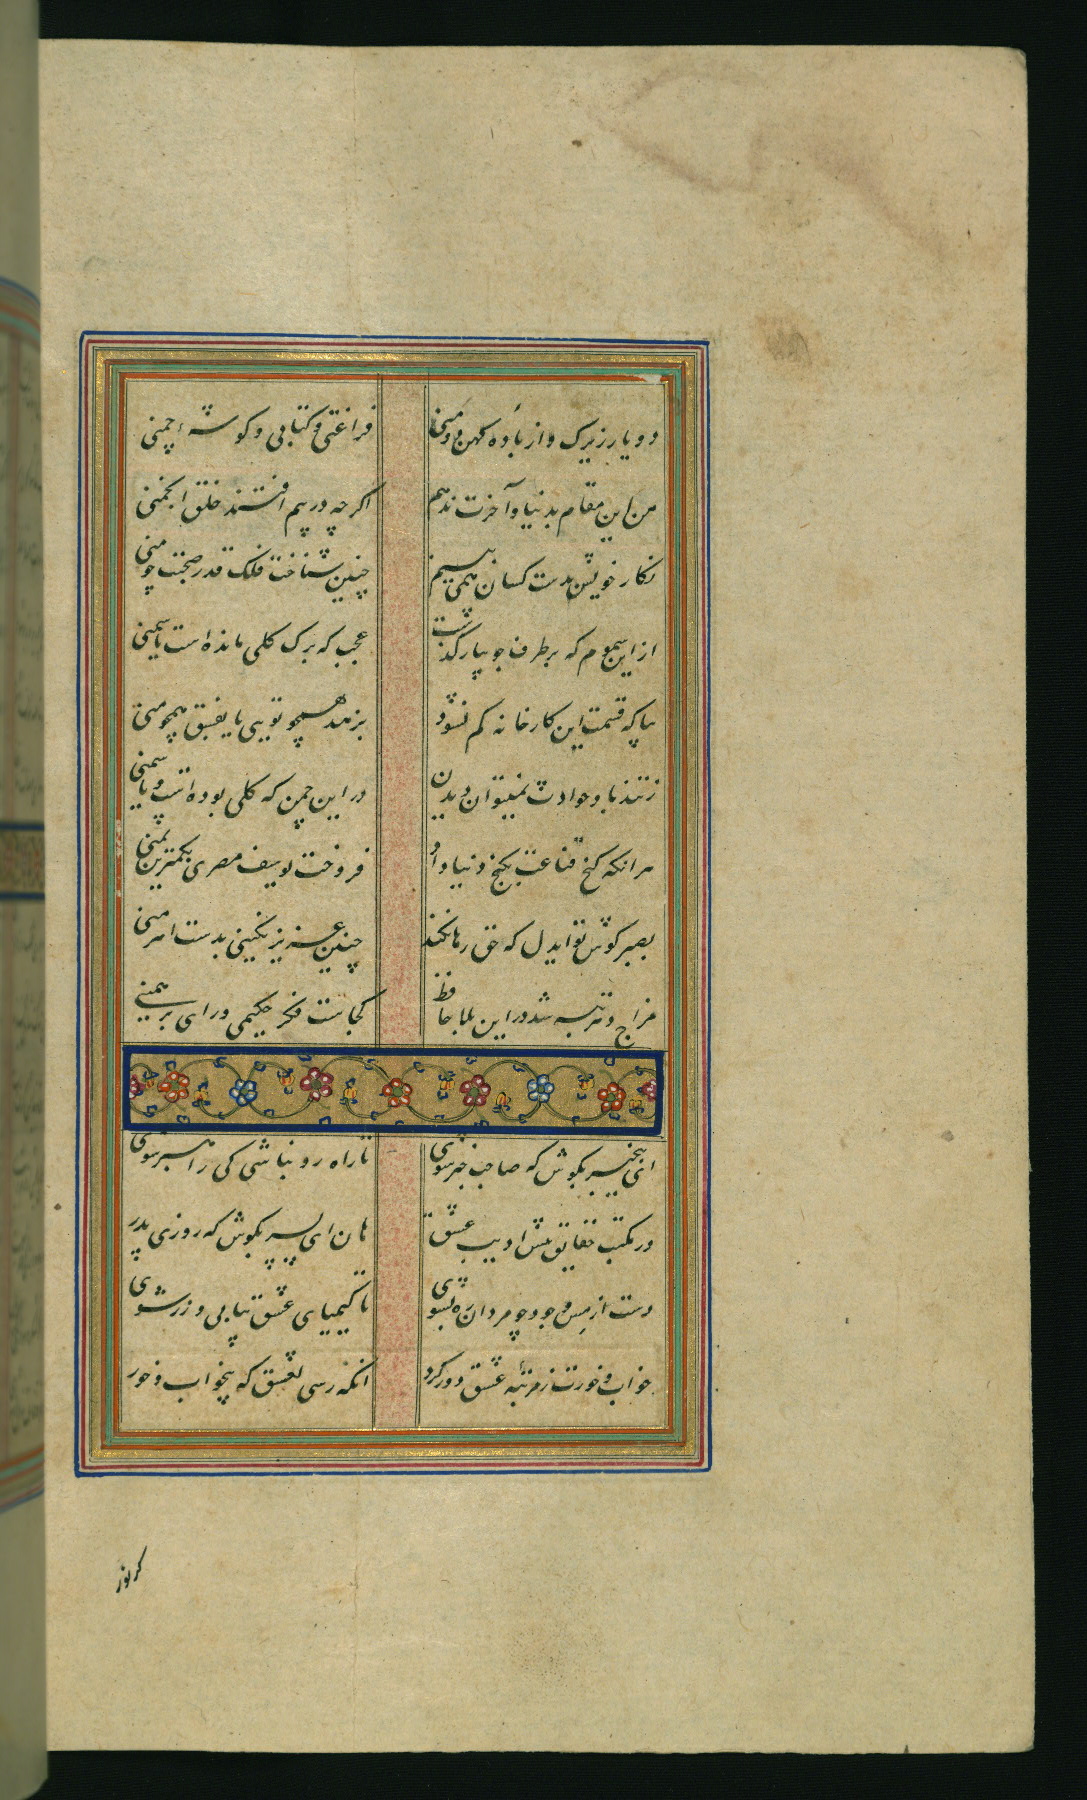 دو یار زیرک و از بادهٔ کهن دو منی فراغتی و کتابی و کوشهٔ چمنی
من این مقام بدنیا و آخرت ندهم اکرچه در پیم افتند خلق انجمنی
نکار خویش بدست کسان همی بینم چنین شناخت فلک قدر صحبت چو منی
از این سموم که بر طرف جویبار کذشت عجب که برک کلی مانده است یاسمنی
بیا که قسمت این کارخانه کم نشود بزهد همچو تویی یا بفسق همچو منی
ز تند باد حوادث نمیتوان دیدن در این چمن که کلی بوده است و یاسمنی
هر انکه کنج قناعت بکنج دنیا داد فروخت یوسف مصری بکمترین ثمنی
بصبر کوش تو ایدل که حق رها نکند چنین عزیز نکینی بدست اهرمنی
مزاج دهر تبه شد در این بلا حافظ کجاست فکر حکیمی و رای برهمنی
ای بیخبر بکوش که صاحب خبر شوی تا راه رو نباشی کی راهبر شوی
در مکتب حقایق پیش ادیب عشق هان ای پسر بکوش که روزی پدر
دست از مس وجود چو مردان ره بشوی تا کیمیای عشق بیابی و زر شوی
خواب و خورت ز مرتبهٔ عشق دور کرد انکه رسی بعشق که بیخواب و خور
کر نور